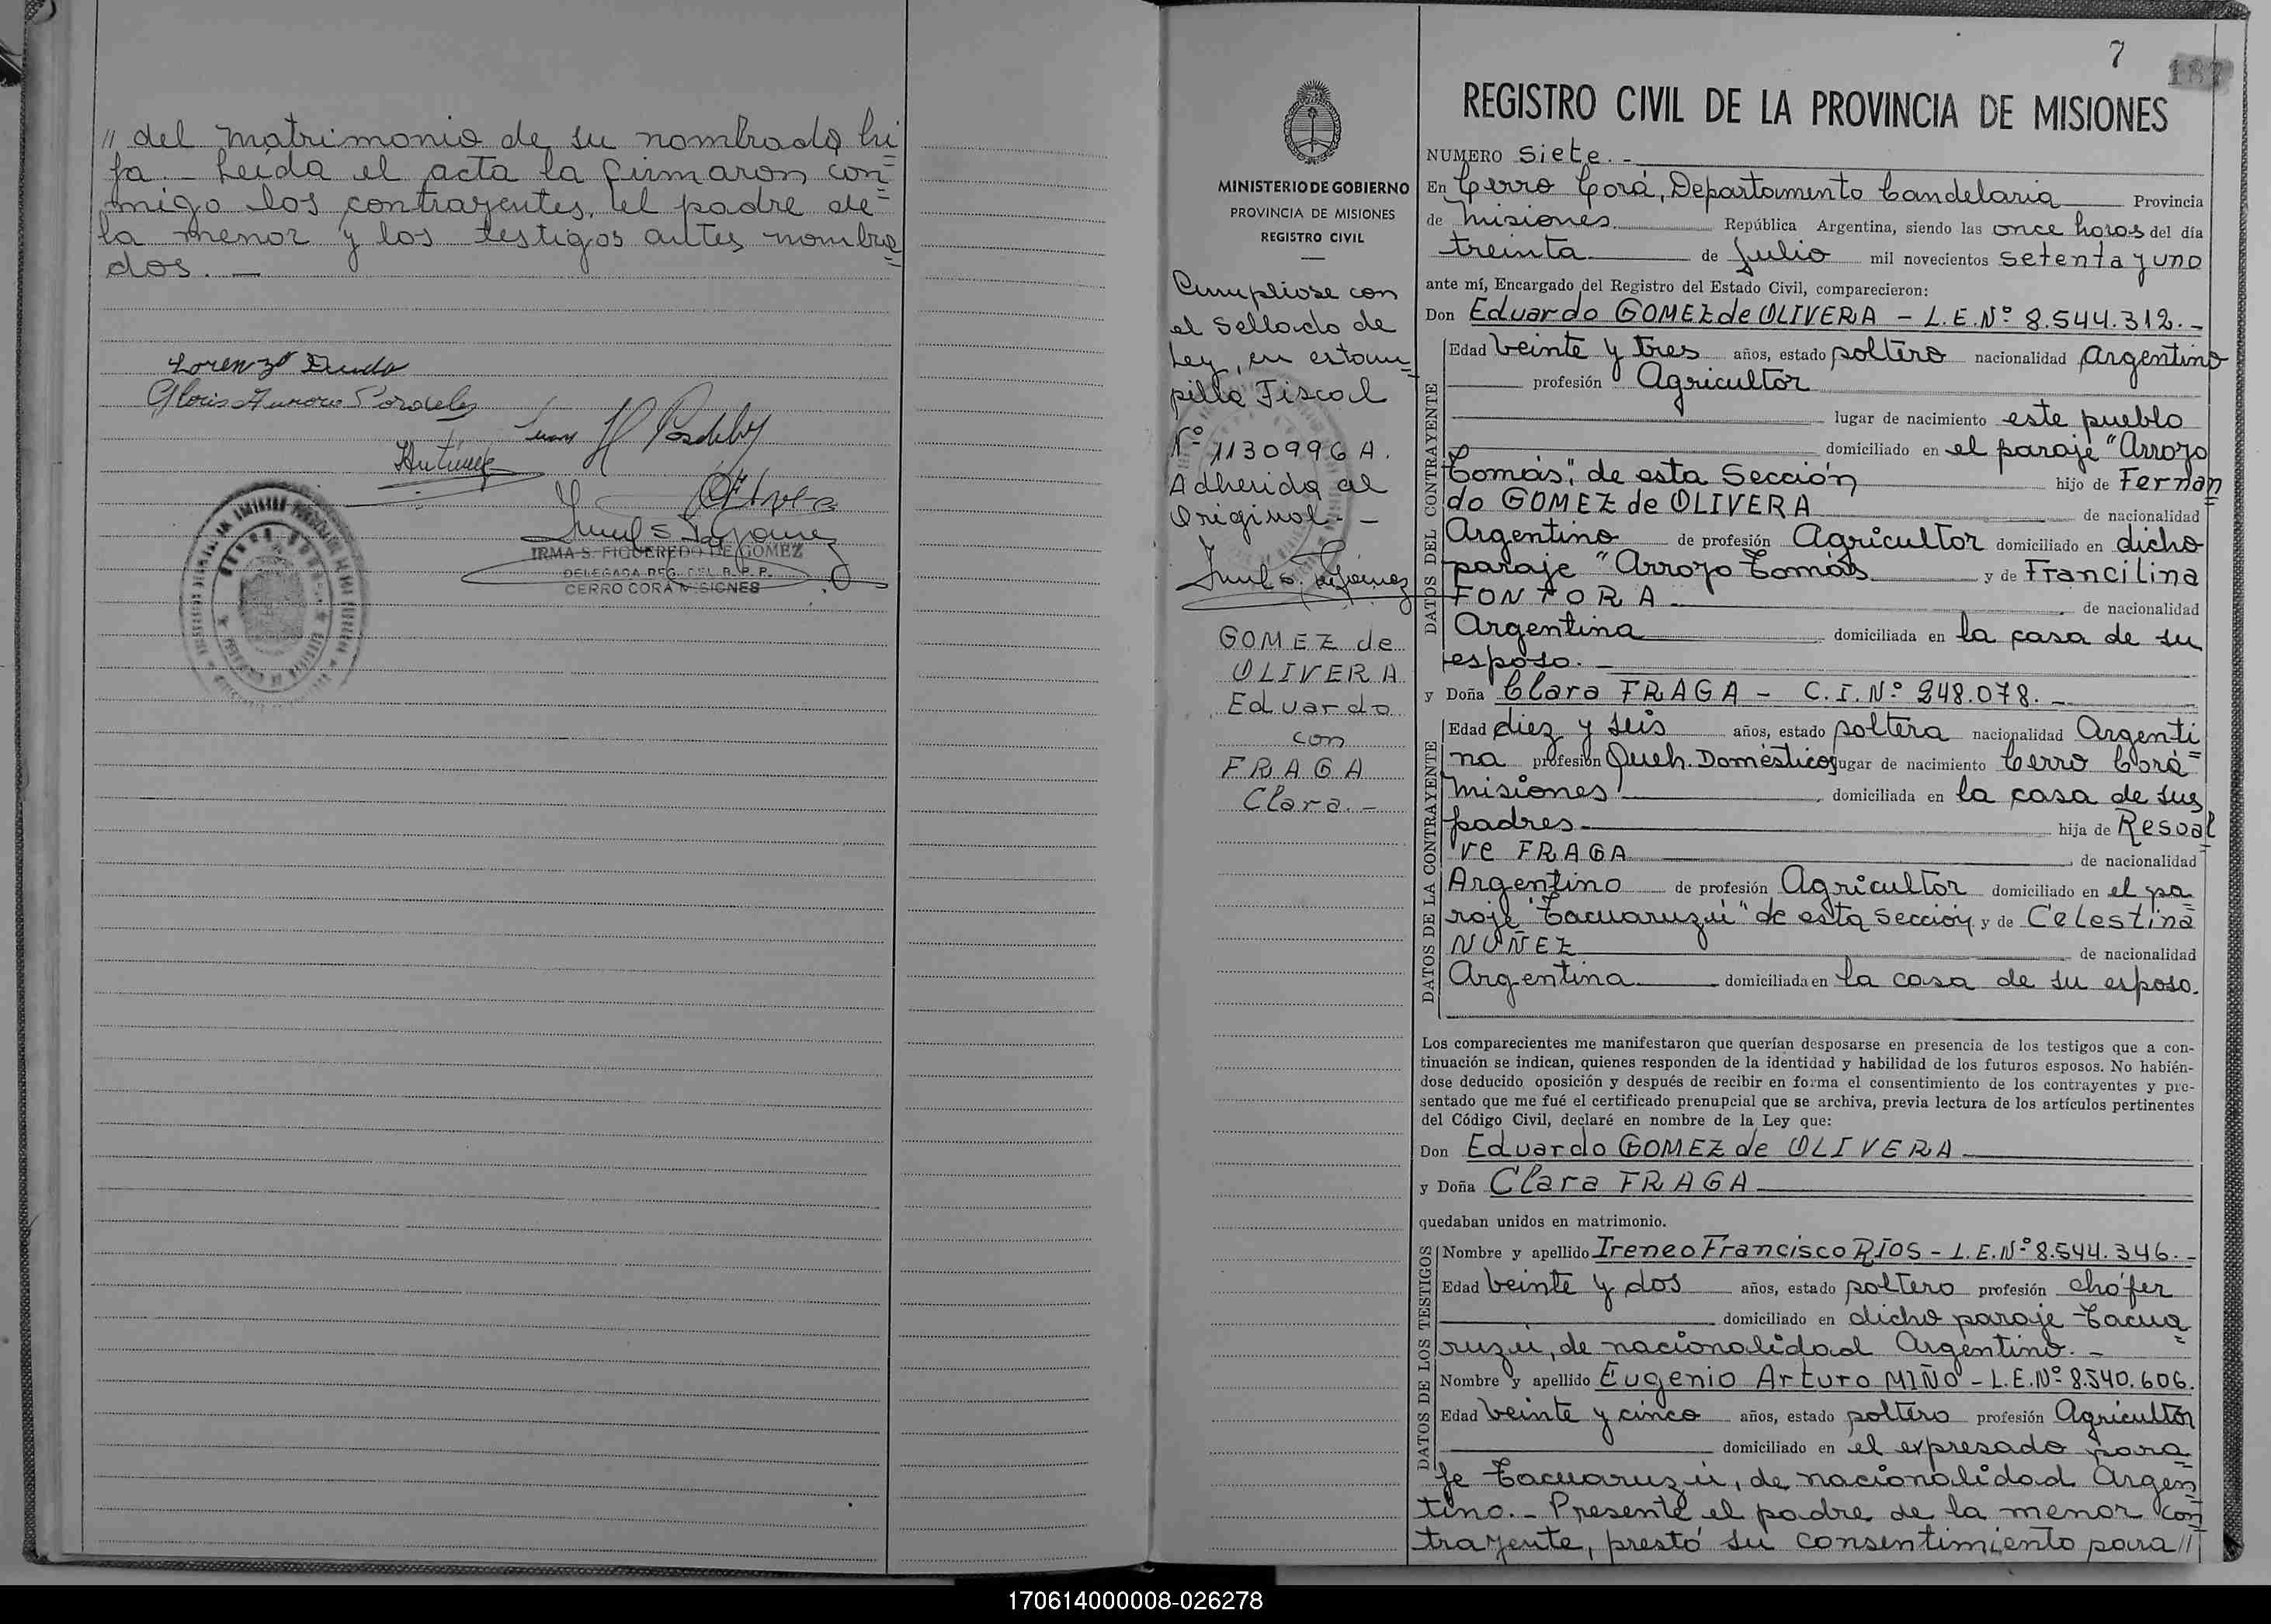 // del matrimonio de su nombrada hi
ja.- Leída el acta la firmaron con
migo los contrayentes, el padre de
la menor y los testigos antes nombra
dos.-
IRMA S. FIGUEREDO DE GOMEZ
DELEGADA REG. DEL R. P. P.
CERRO CORA MISIONES
MINISTERIO DE GOBIERNO
PROVINCIA DE MISIONES
REGISTRO CIVIL
Cumpliose con
el Sellado de
Ley, en estam
pilla Fiscal
Nº 1130996 A.
Adherida al
Original.-
GOMEZ de
OLIVERA
Eduardo
con
FRAGA
Clara.-
7
187
REGISTRO CIVIL DE LA PROVINCIA DE MISIONES
NUMERO Siete.-
En Cerro Corá, Departamento Candelaria Provincia
de Misiones República Argentina, siendo las once horas del día
treinta de Julio mil novecientos setenta y uno
ante mí, Encargado del Registro del Estado Civil, comparecieron:
Don Eduardo GOMEZ de OLIVERA - L.E.Nº 8.544.312.-
DATOS DEL CONTRAYENTE
Edad veinte y tres años, estado soltero nacionalidad Argentino
profesión Agricultor
lugar de nacimiento este pueblo
domiciliado en el paraje "Arroyo
Tomás", de esta Sección hijo de Fernan
do GOMEZ de OLIVERA de nacionalidad
Argentino de profesión Agricultor domiciliado en dicho
paraje "Arroyo Tomás y de Francilina
FONTORA de nacionalidad
Argentina domiciliada en la casa de su
esposo.-
y Doña Clara FRAGA - C.I.Nº 248.078.-
DATOS DE LA CONTRAYENTE
Edad diez y seis años, estado soltera nacionalidad Argenti
na profesión Queh. Domésticos lugar de nacimiento Cerro Corá
Misiones domiciliada en la casa de sus
padres hija de Resoal
re FRAGA de nacionalidad
Argentino de profesión Agricultor domiciliado en el pa
raje "Tacuaruzú" de esta Sección y de Celestina
NUÑEZ de nacionalidad
Argentina domiciliada en la casa de su esposo.
Los comparecientes me manifestaron que querían desposarse en presencia de los testigos que a con-
tinuación se indican, quienes responden de la identidad y habilidad de los futuros esposos. No habién-
dose deducido oposición y después de recibir en forma el consentimiento de los contrayentes y pre-
sentado que me fué el certificado prenupcial que se archiva, previa lectura de los artículos pertinentes
del Código Civil, declaré en nombre de la Ley que:
Don Eduardo GOMEZ de OLIVERA
y Doña Clara FRAGA
quedaban unidos en matrimonio.
DATOS DE LOS TESTIGOS
Nombre y apellido Ireneo Francisco RÍOS - L.E.Nº 8.544.346.-
Edad veinte y dos años, estado soltero profesión chófer
domiciliado en dicho paraje Tacua
ruzú, de nacionalidad Argentino.-
Nombre y apellido Eugenio Arturo MIÑO - L.E.Nº 8.540.606.
Edad veinte y cinco años, estado soltero profesión Agricultor
domiciliado en el expresado para
je Tacuaruzú, de nacionalidad Argen
tino.- Presente el padre de la menor con
trayente, prestó su consentimiento para //
170614000008-026278